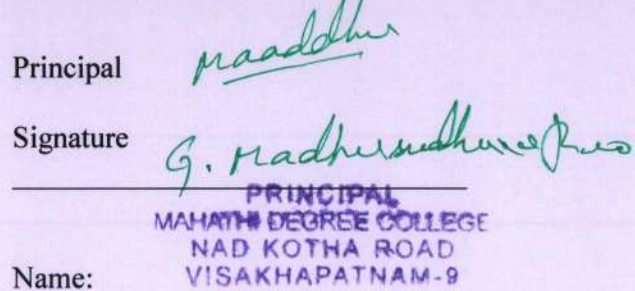 Principal
Signature
G. Madhusudhana Rao
PRINCIPAL
MAHATHI DEGREE COLLEGE
NAD KOTHA ROAD
Name: VISAKHAPATNAM-9